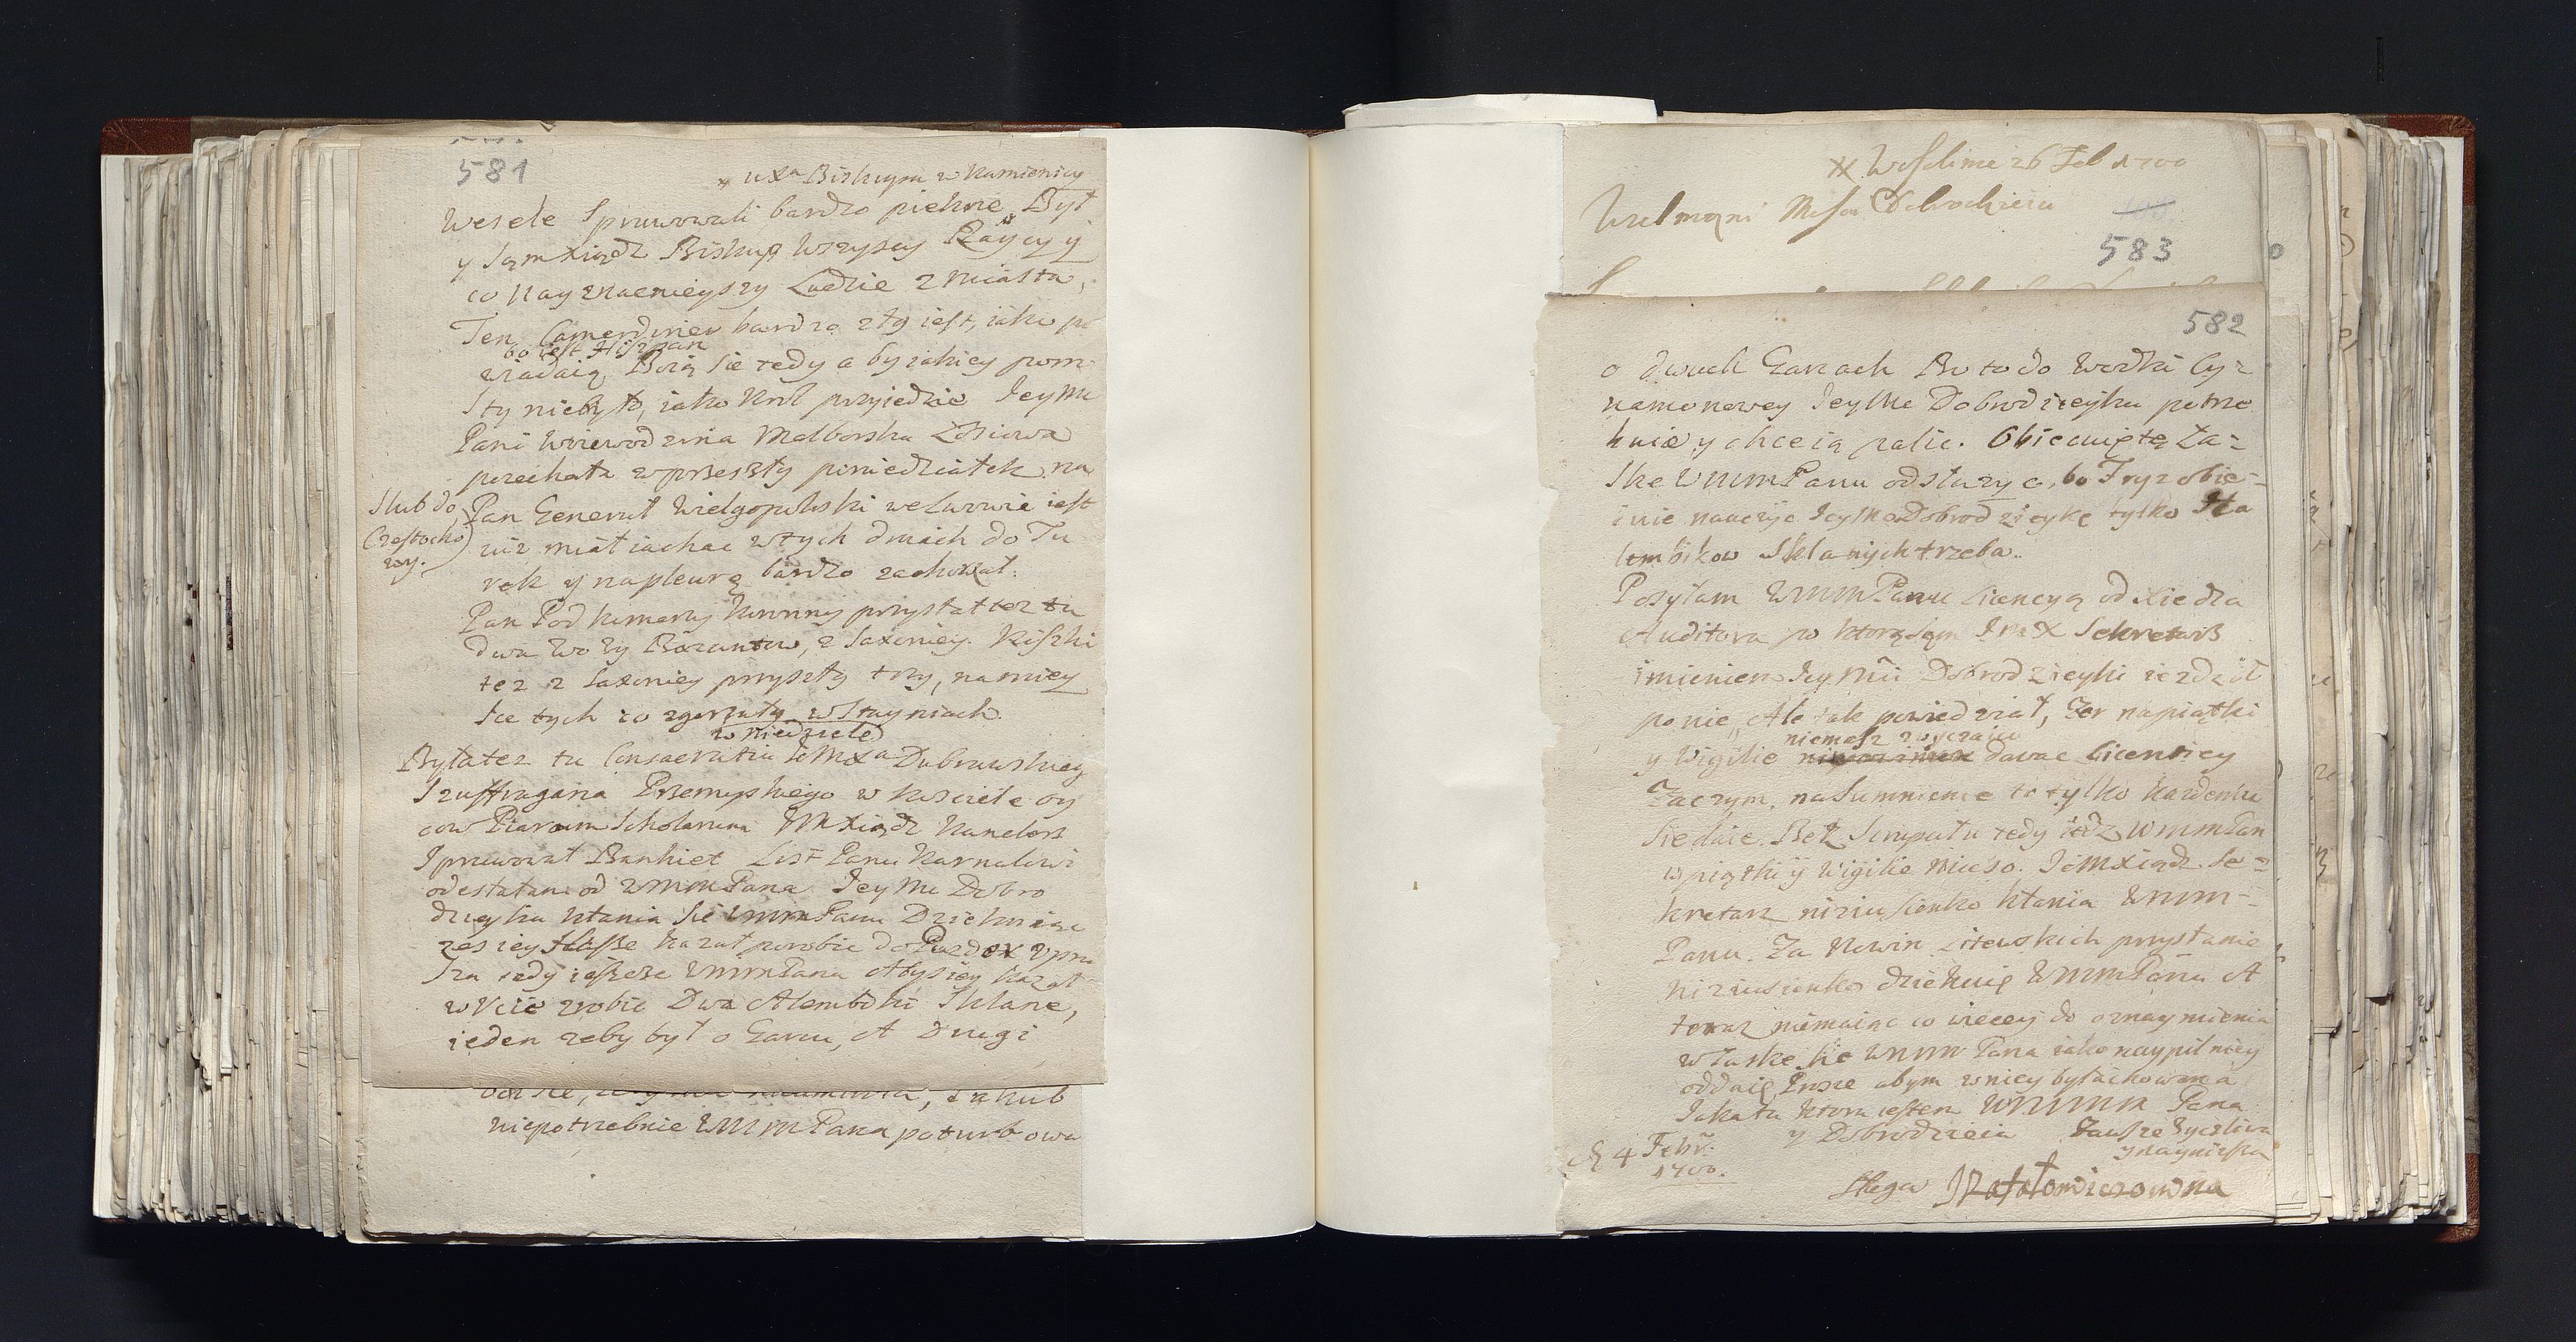 581
u Xa Biskupa w Kamienicy
Wesele sprawowali bardzo piekne Był
y Sąm Xiądz Biskup wszyscy Raycy y
co nayznacnieyszy Ludzie z miasta,
Ten Camerdiner bardzo zły iest, iako po
bo iest Hiszpan
wiadaią Boią sie tedy a by iakiey pom
sty niebyło, iako Krol przyiedzie Jeymc
Pani Woiewodzina Malborska
poiechała w przeszły poniedziałek na
Slub do
Częstocho
wy.
Pan Generał Wielgopolski we Lwowie iest
iuż miał iachac w tych dniach do Tu
rek y na pleurą bardzo zachorzał.
Pan Pod Komorzy Koronny przysłał tez tu
dwa wozy Bażantow, z Saxoniey.
tez z Saxoniey przyszły trzy, na miey
sce tych co zgorzały w Stayniach.
w niedziele
Była tez tu Consecratia JeMXa Dubrawskieg
Szuffragana Przemyskiego w kosciele oy
cow Piarum Scholarum JMXiądz Kanclerz
sprawował Bankiet List Panu Karnalowi
odesłałam od WMMPana Jey Mc Dobro
dzieyka kłania sie WMMPanu Dziekuiąc
zes iey kazał porobic do upra
sza tedy ieszcze WMMPana Abys iey kazał
w Hucie zrobic Dwa Alembiki Sklane,
ieden zeby był o Garcu, A Drugi
niepotrzebnie WMMPana poturbowa
Wesolime 26 Feb 1700
Wielmozni Mosci Dobrodzieiu
583
582
o dwuch Garcach Bo to do wodki Cy=
namonowey Jeymc Dobrodzieyka potrze
buie y chce ią palic. Obiecuię tę ła=
skę WMMPanu odsłuzyc, bo Fryz obie=
cuie nauczyc Jeymc Dobrodzieykę tylko
lembikow Sklanych trzeba.
Posyłam WMMPanu Licencyą od Xiedza
Auditora po ktorą sąm JMX Sekretarz
imieniem Jeymci Dobrodzieyki iezdził
po nię, Ale tak powiedział, Ze na piątki
niemasz zwyczaiu
y Wigilie dawac Licentiey
Zaczym, na Sumnienie to tylko kazdemu
sie daie. Bez Scrupułu tedy iedz WMMPan
w piątki y Wigilie mięso. JeMXiądz Se=
kretarz niziusienko kłania WMM=
Panu. Za Nowin Litewskich przysłanie
niziusienko dziekuię WMMPanu A
teraz niemaiąc co wiecey do oznaymienia
w łaskę sie WMM Pana iako naypilniey
oddaię Proszę abym w niey była chowana
Jakatu ktora iestem WMMM Pana
y Dobrodzieia Zawsze Zyczliwa
y naynisza
D 4 Febr.
1700.
Sługa